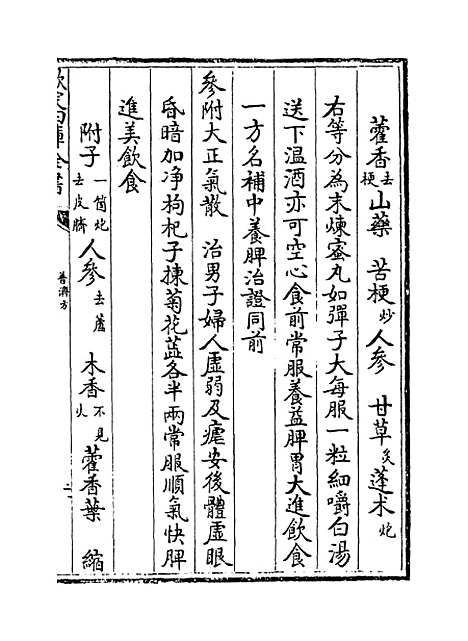 藿香去梗山藥 苦梗炒人參 甘草炙蓬术炮
右等分為末煉蜜丸如彈子大每服一粒細嚼白湯
送下温酒亦可空心食前常服養益脾胃大進飲食
一方名補中養脾治證同前
參附大正氣散 治男子婦人虛弱及瘧安後體虛眼
昏暗加净枸杞子揀菊花蕋各半兩常服順氣快脾
進美飲食
附子一箇炮去皮臍人參去蘆 木香不見火 藿香葉 縮
欽定四庫全書
普濟方